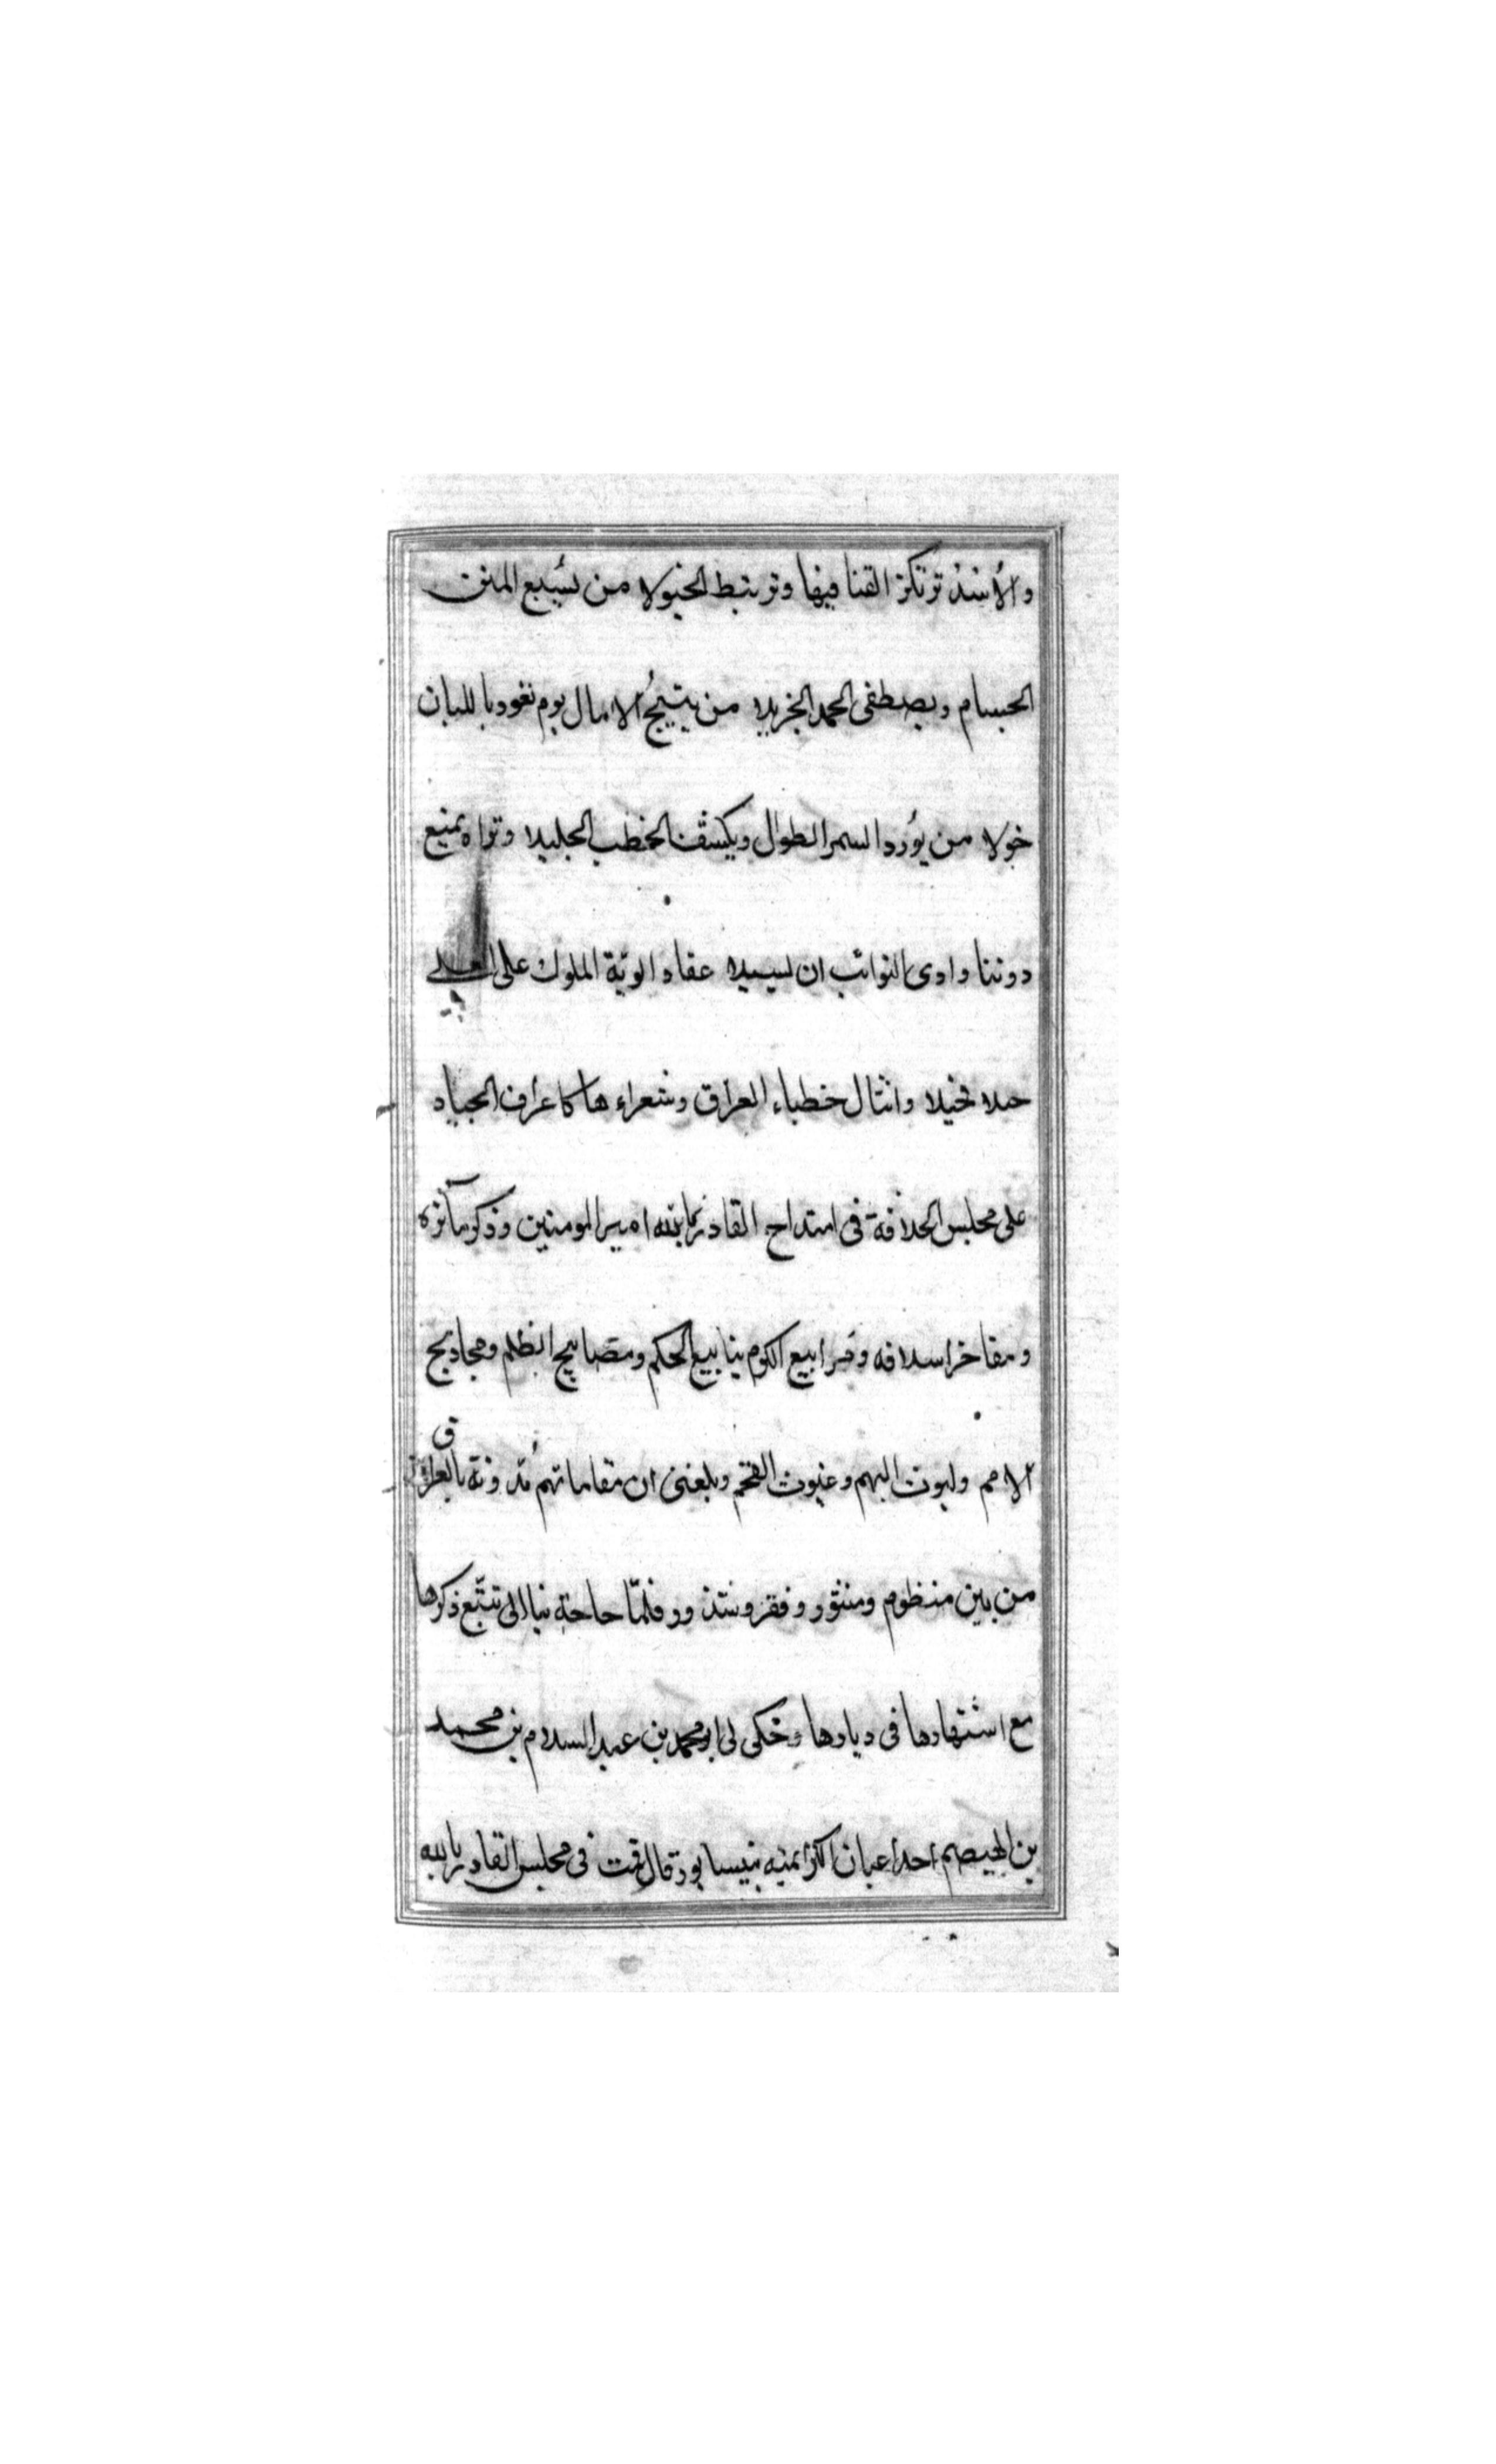 والأسد ترتكز القنا فيها وترتبط الخيولا من يسبع المنن
الجسام ويصطفى الحمد الجزيلا من ينتج الامال يوم نغود بالليان
خولا من يورد السمر الطوال ويكشف الخطب الجليلا وتراه يمنع
دوننا وادى النوائب ان يسيلا عقاد الوية الملوك على
حيلا فخيلا وانثال خطباء العراق وشعراءها كاعراف الجياد
على مجلس الخلافة فى امتداح القادر بالله امير المومنين وذكر مآثره
ومفاخر اسلافه ومرابيع الكرم ينابيع الحكم ومصابيح الظلم ومجاديح
الامم وليوث البهم وغيوث القحم وبلغنى ان مقاماتهم مدونة بالعراق
من بين منظوم ومنثور وفقر وشذور فلما حاجة بنا الى تتبع ذكرها
مع اشتهارها فى ديارها وحكى لى ابو محمد بن عبد السلام بن محمد
بن الهيصم احد اعيان الكرامية بنيسابور قال قمت فى مجلس القادر بالله